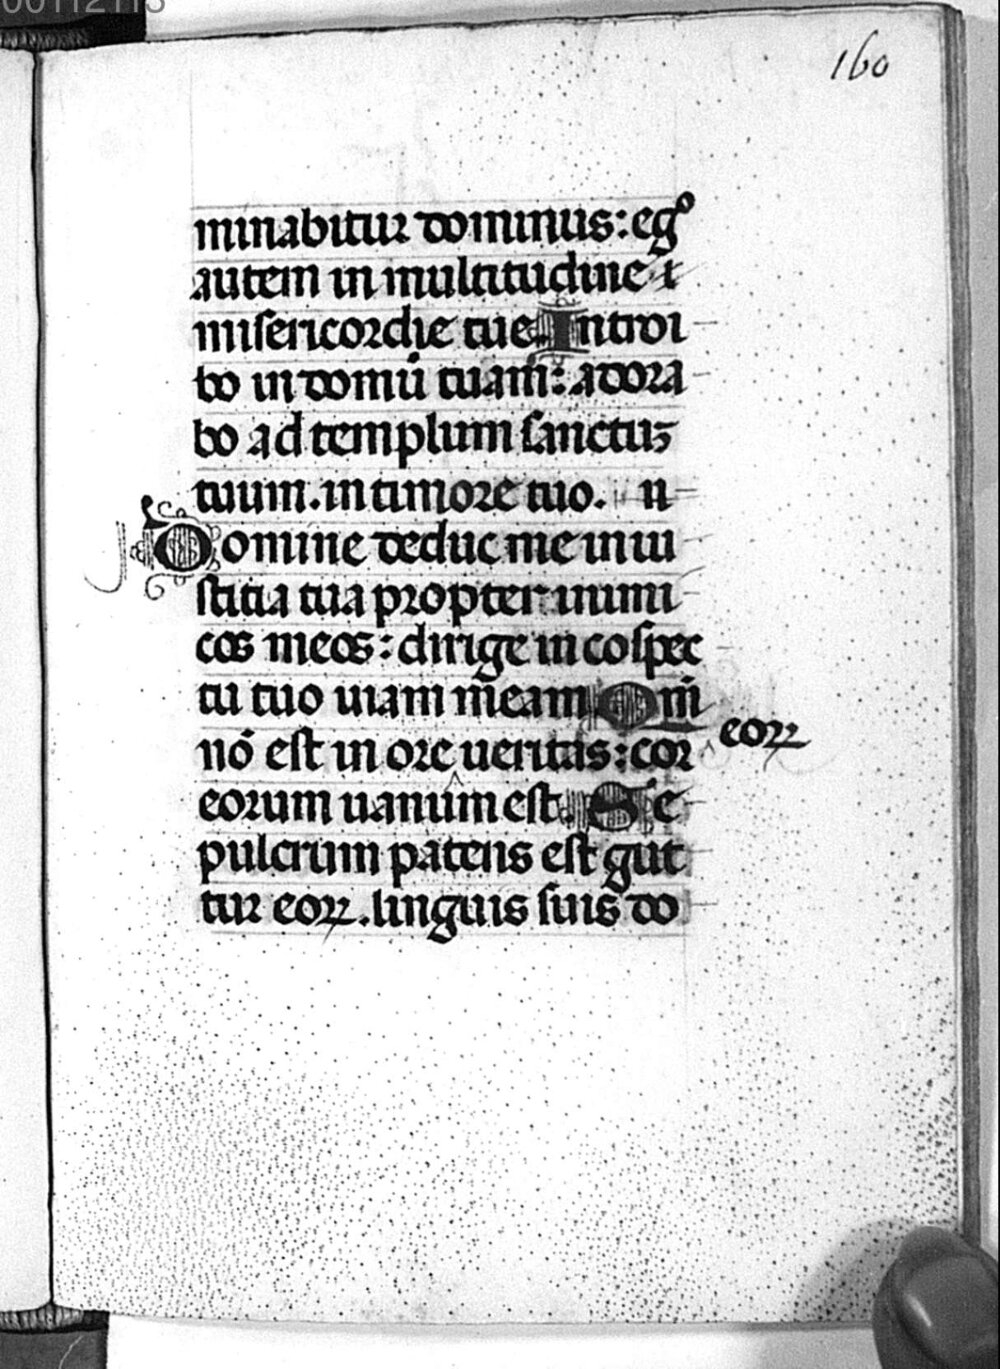 160
minabitur dominus: egº
autem in multitudine
misericordie tue. Introi
bo in domū tuam: adora
bo ad templum sanctuʒ
tuum. in timore tuo. n
Domine deduc me in iu
stitia tua propter inimi
cos meos: dirige in cospec
tu tuo uiam meam Qm̄
nō est in ore ueritas: cor
eoꝝ
eorum uanum est. Se
pulcrum patens est gut
tur eoꝝ. linguis suis do